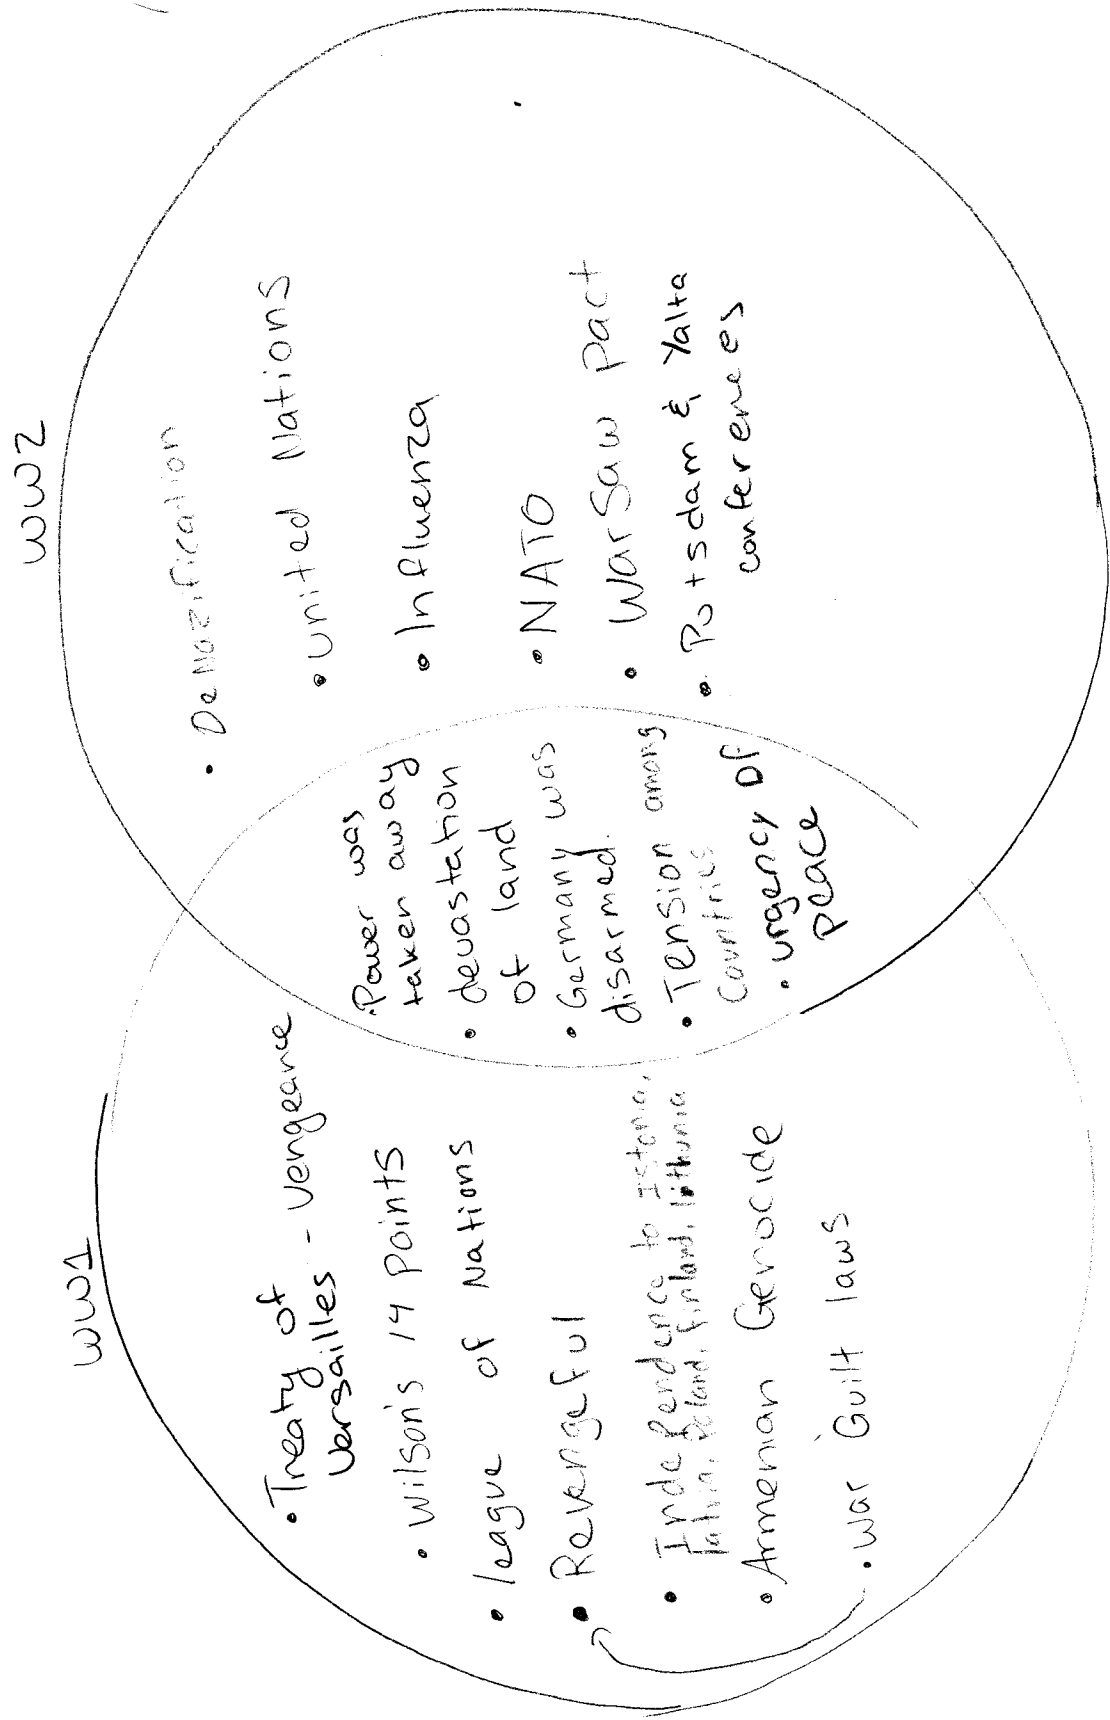 WW1
• Treaty of
Versailles - vengeance
• Wilson's 14 Points
• league of Nations
• Revengeful
• Independence to Istonia,
latvia, Poland, Finland, lithunia
• Armenian Genocide
• War Guilt laws
• Power was
taken away
• devastation
of land
• Germany was
disarmed.
• Tension among
Countries
• urgency of
peace
WW2
• DeNazification
• United Nations
• Influenza
• NATO
• Warsaw pact
• Potsdam & Yalta
conferences